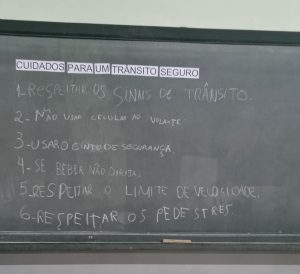 CUIDADOS PARA UM TRÂNSITO SEGURO
1. RESPEITAR OS SINAIS DE TRÂNSITO.
2- NÃO USAR CELULAR AO VOLANTE
3-USAR O CINTO DE SEGURANÇA
4- SE BEBER NÃO DIRIJA.
5. RESPEITAR O LIMITE DE VELOCIDADE.
6-RESPEITAR OS PEDESTRES.